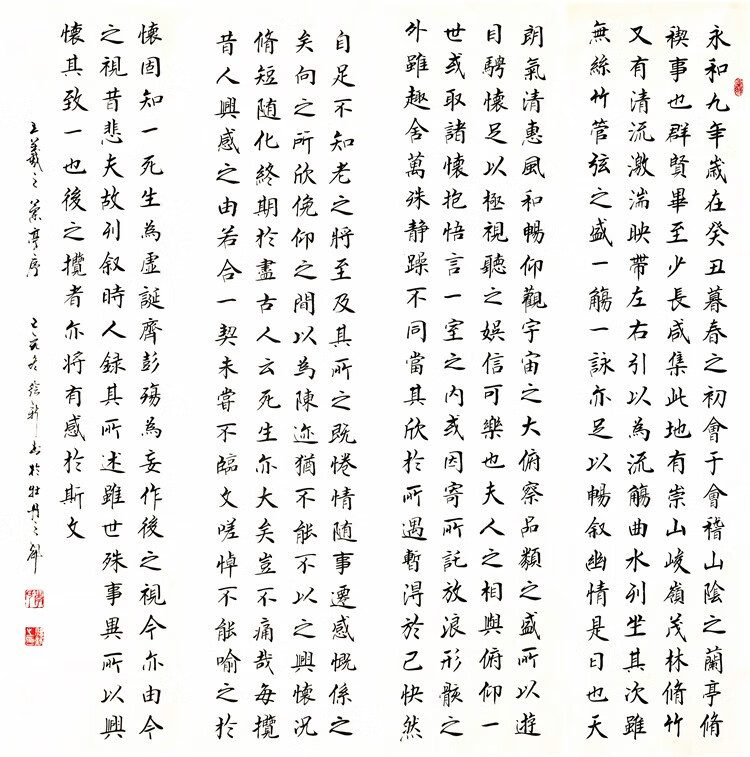 永和九年歲在癸丑暮春之初會于會稽山陰之蘭亭脩
禊事也群賢畢至少長咸集此地有崇山峻嶺茂林脩竹
又有清流激湍映帶左右引以為流觴曲水列坐其次雖
無絲竹管弦之盛一觴一詠亦足以暢叙幽情是日也天
朗氣清惠風和暢仰觀宇宙之大俯察品類之盛所以遊
目騁懷足以極視聽之娛信可樂也夫人之相與俯仰一
世或取諸懷抱悟言一室之内或因寄所託放浪形骸之
外雖趣舍萬殊静躁不同當其欣於所遇暫得於己快然
自足不知老之將至及其所之既惓情随事遷感慨係之
矣向之所欣俛仰之間以為陳迹猶不能不以之興懷況
脩短随化終期於盡古人云死生亦大矣豈不痛哉每攬
昔人興感之由若合一契未嘗不臨文嗟悼不能喻之於
懷固知一死生為虛誕齊彭殤為妄作後之視今亦由今
之視昔悲夫故列叙時人録其所述雖世殊事異所以興
懷其致一也後之攬者亦將有感於斯文
王羲之蘭亭序 己亥冬 書於牡丹之鄉